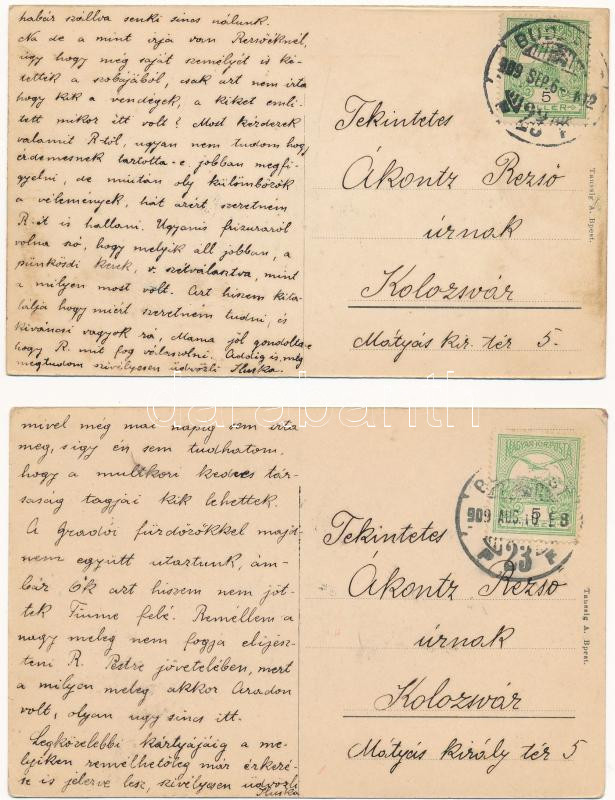 habár szállva senki sincs nálunk.
Na de a mint irja van Rezsőéknél,
úgy hogy még saját személyét is ki-
tették a szobájából, csak azt nem irta
hogy kik a vendégek, a kiket emli-
tett mikor itt volt? Most kérdezek
valamit R-től, ugyan nem tudom hogy
érdemesnek tartotta-e jobban megfi-
gyelni, de miután oly külömbözök
a vélemények, hát azért szeretném
R-it is hallani. Ugyanis frizuraról
volna szó, hogy melyik áll jobban, a
pünkösdi kerek, v. szétválasztva, mint
a milyen most volt. Azt hiszem kita-
lálja hogy miért szeretném tudni, és
kiváncsi vagyok rá, Mama jól gondolta-e
hogy R. mit fog válaszolni. Addig is, mig
megtudom szivélyesen üdvözli Iluska.
BUDAPEST
909 SEP. 6
5
23
Tekintetes
Ákontz Rezső
úrnak
Kolozsvár
Mátyás kir. tér 5.
Taussig A. Bpest.
darabanth
mivel még mai napig sem irta
meg, sigy én sem tudhatom,
hogy a multkori kedves tár-
saság tagjái kik lehettek.
A gradói fürdőzőkkel majd-
nem együtt utaztunk, ám-
bár Ők azt hiszem nem jöt-
tek Fiume felé. Remélem a
nagy meleg nem fogja elijesz-
teni R. Pestre jövetelében, mert
a milyen meleg akkor Aradon
volt, olyan ugy sincs itt.
Legközelebbi kártyájáig a me-
lyiken remélhetőleg már érkezé-
se is jelezve lesz, szivélyesen üdvözli
Iluska
MAGYAR KIR. POSTA
5
909 AUG. 10
23
Tekintetes
Ákontz Rezső
úrnak
Kolozsvár
Mátyás király tér 5
Taussig A. Bpest.